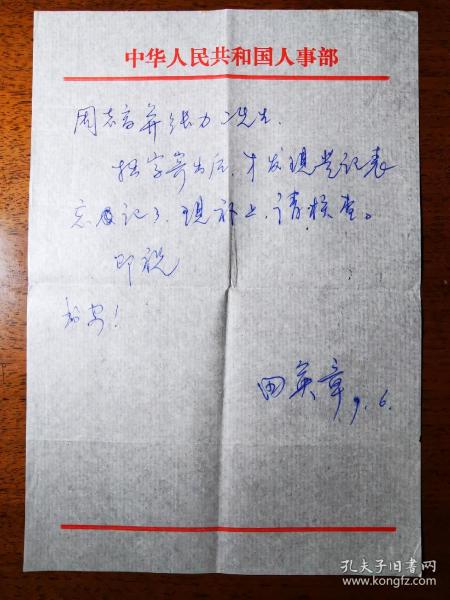 中华人民共和国人事部
周志高并张力先生
拙字寄出后,才发现登记表
忘记了,现补上,请核查。
即祝
安!
田英章 9.6.
孔夫子旧书网
www.kongfz.com